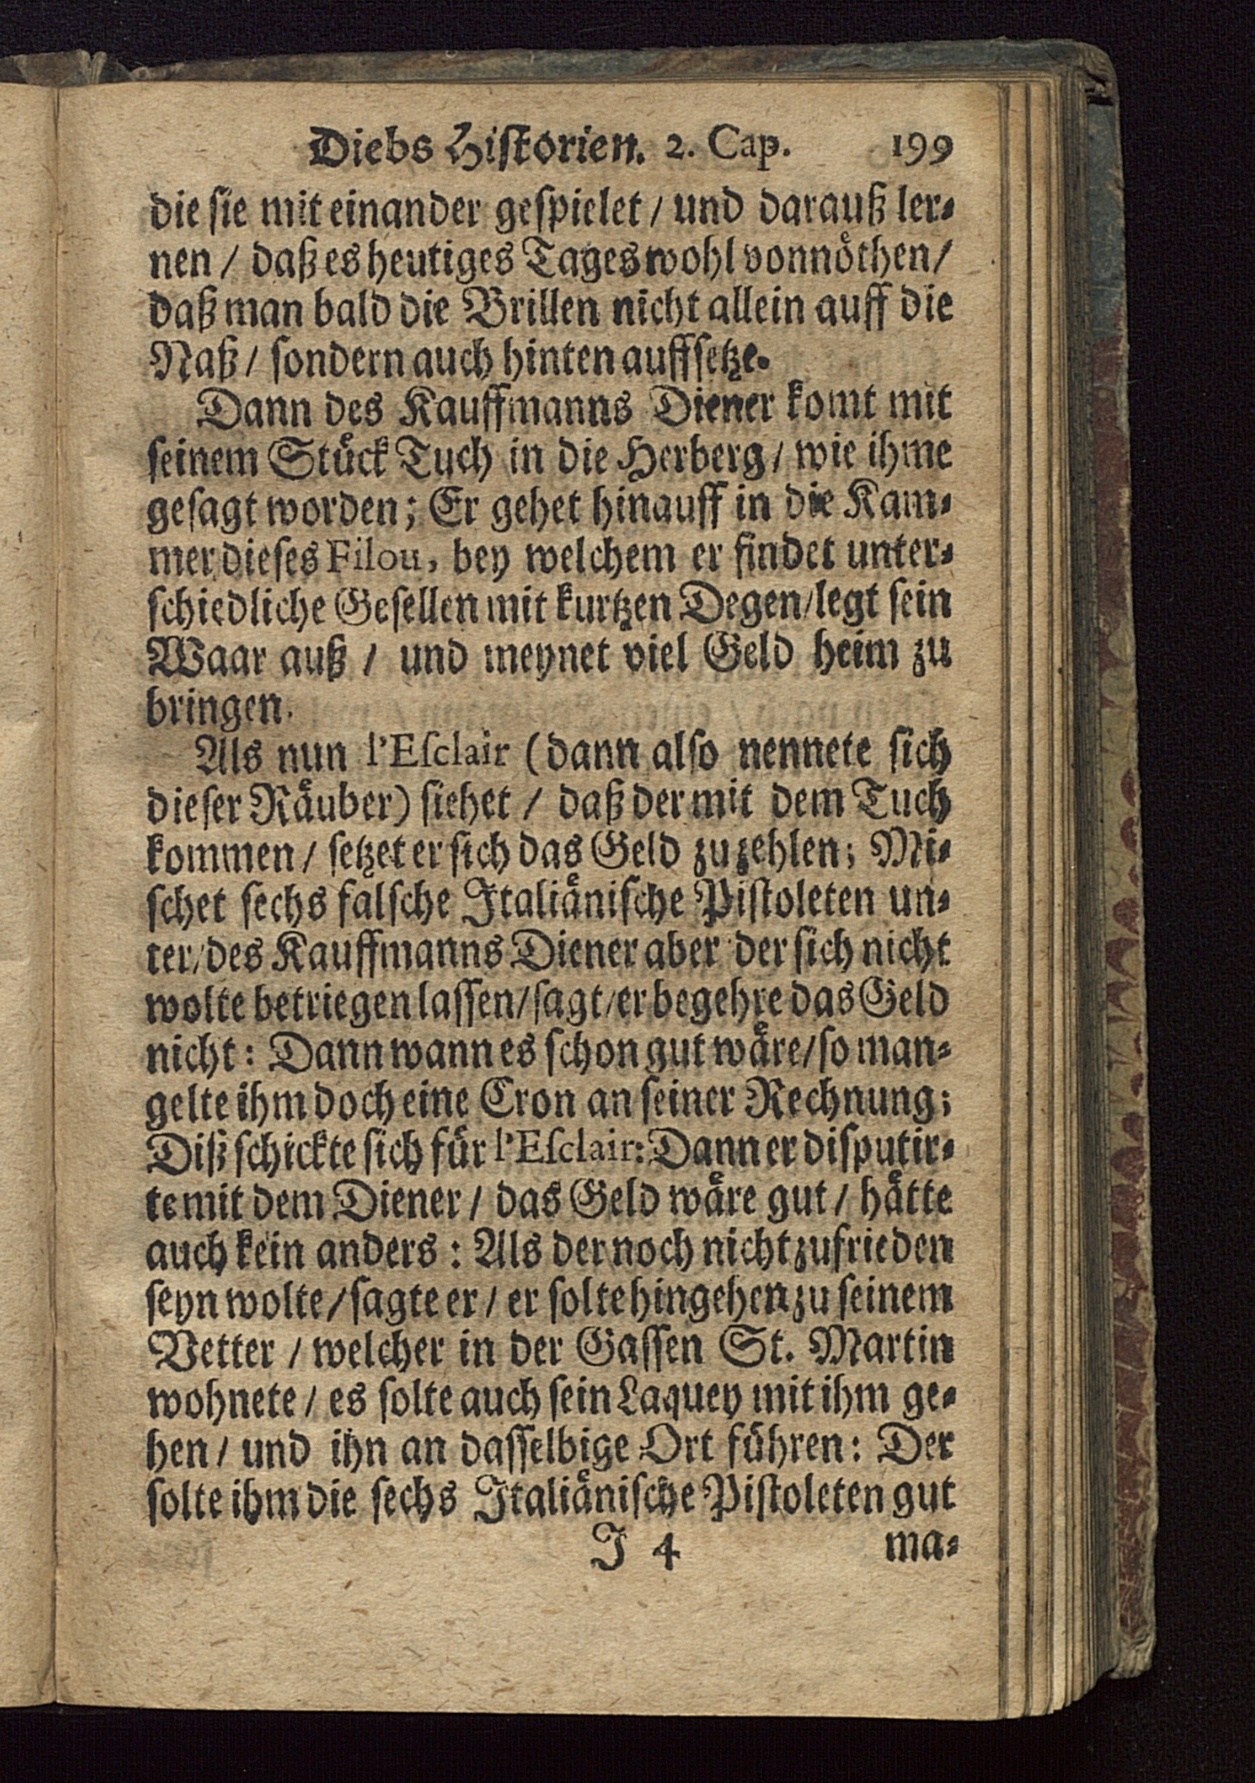 Diebs Historien. 2. Cap. 199
die sie mit einander gespielet / und darauß ler-
nen / daß es heutiges Tages wohl vonnöthen /
daß man bald die Brillen nicht allein auff die
Naß / sondern auch hinten auffsetze.
Dann des Kauffmanns Diener komt mit
seinem Stück Tuch in die Herberg / wie ihme
gesagt worden; Er gehet hinauff in die Kam-
mer dieses Filou, bey welchem er findet unter-
schiedliche Gesellen mit kurtzen Degen / legt sein
Waar auß / und meynet viel Geld heim zu
bringen.
Als nun l'Esclair (dann also nennete sich
dieser Räuber) siehet / daß der mit dem Tuch
kommen / setzet er sich das Geld zu zehlen; Mi-
schet sechs falsche Italiänische Pistoleten un-
ter / des Kauffmanns Diener aber der sich nicht
wolte betriegen lassen / sagt / er begehre das Geld
nicht: Dann wann es schon gut wäre / so man-
gelte ihm doch eine Cron an seiner Rechnung;
Diß schickte sich für l'Esclair: Dann er disputir-
te mit dem Diener / das Geld wäre gut / hätte
auch kein anders: Als der noch nicht zufrieden
seyn wolte / sagte er / er solte hingehen zu seinem
Vetter / welcher in der Gassen St. Martin
wohnete / es solte auch sein Laquey mit ihm ge-
hen / und ihn an dasselbige Ort führen: Der
solte ihm die sechs Italiänische Pistoleten gut
J 4 ma-